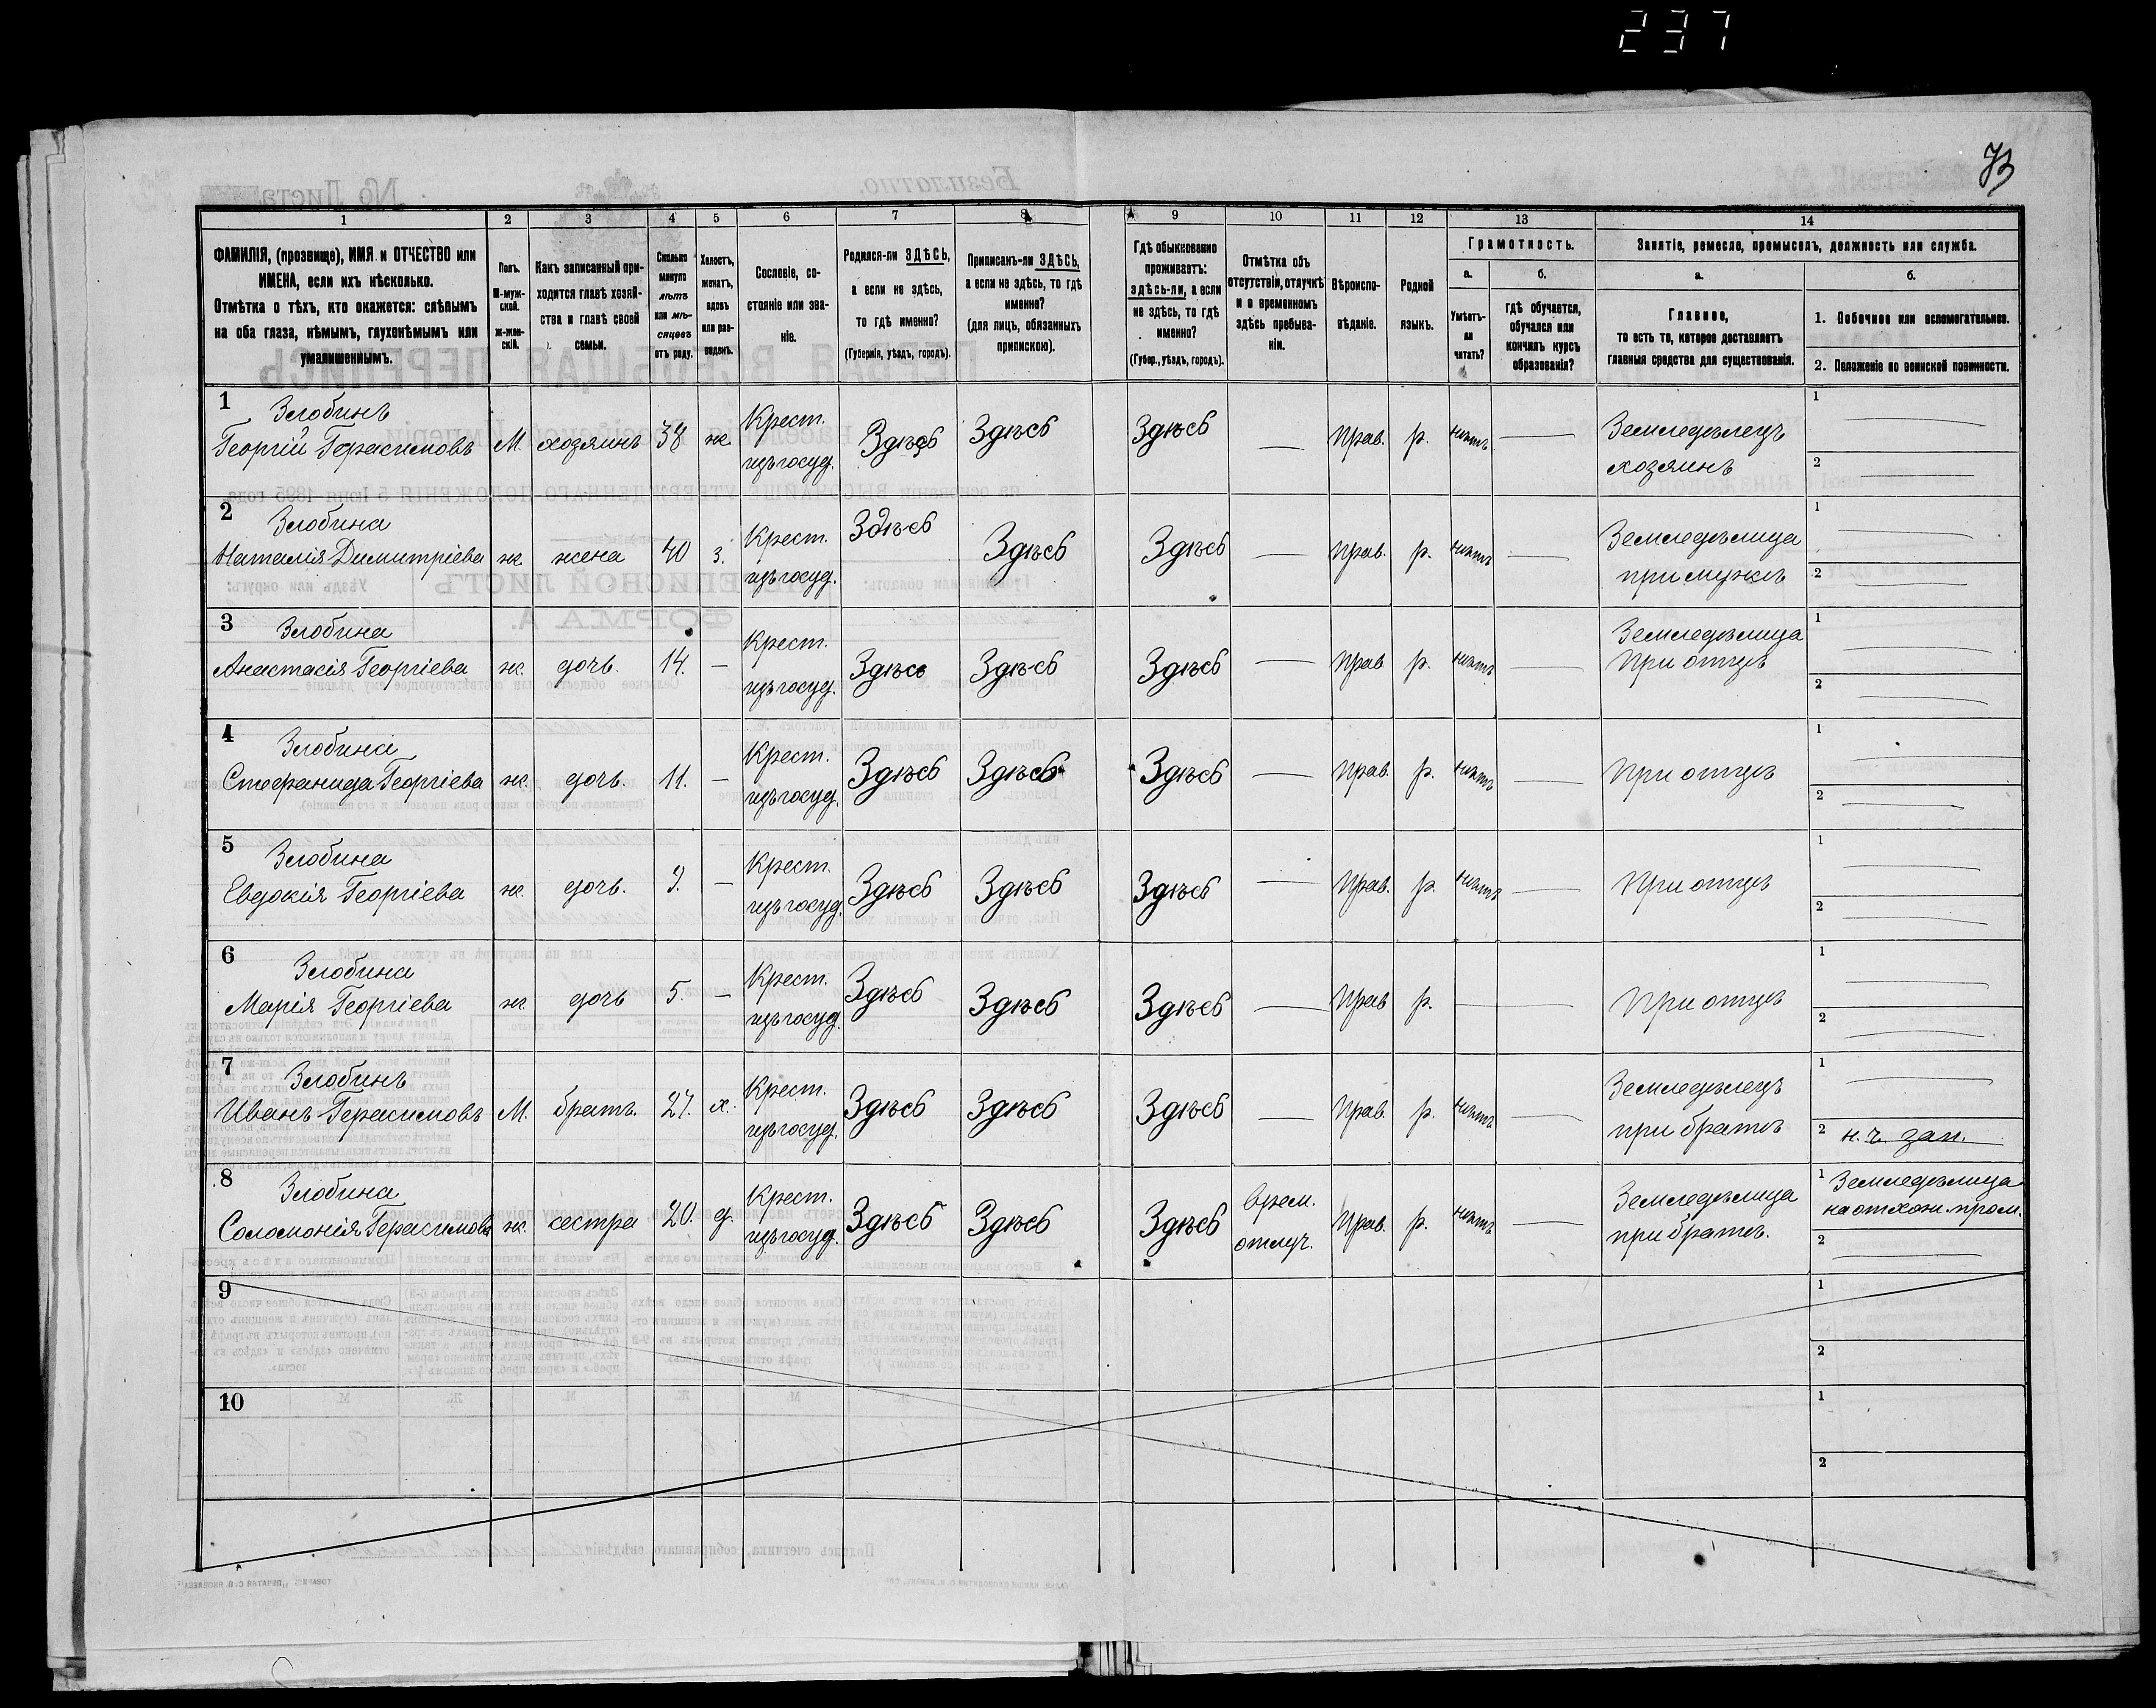 237
73
1 2 3 4 5 6 7 8 9 10 11 12 13 14
ФАМИЛІЯ, (прозвище), ИМЯ и ОТЧЕСТВО или ИМЕНА, если ихъ нѣсколько.
Отмѣтка о тѣхъ, кто окажется: слѣпымъ на оба глаза, нѣмымъ, глухонѣмымъ или умалишеннымъ.
Полъ. М-мужской. Ж-женскій.
Какъ записанный приходится главѣ хозяйства и главѣ своей семьи.
Сколько минуло лѣтъ или мѣсяцевъ отъ роду.
Холостъ, женатъ, вдовъ или разведенъ.
Сословіе, состояніе или званіе.
Родился-ли ЗДѢСЬ, а если не здѣсь, то гдѣ именно?
(Губернія, уѣздъ, городъ).
Приписанъ-ли ЗДѢСЬ, а если не здѣсь, то гдѣ именно?
(для лицъ, обязанныхъ припискою).
Гдѣ обыкновенно проживаетъ: здѣсь-ли, а если не здѣсь, то гдѣ именно?
(Губер., уѣздъ, городъ).
Отмѣтка объ отсутствіи, отлучкѣ и о временномъ здѣсь пребываніи.
Вѣроисповѣданіе.
Родной языкъ.
Грамотность.
а. Умѣетъ-ли читать?
б. гдѣ обучается, обучался или кончилъ курсъ образованія?
Занятіе, ремесло, промыселъ, должность или служба.
а. Главное, то есть то, которое доставляетъ главныя средства для существованія.
б.
1. Побочное или вспомогательное.
2. Положеніе по воинской повинности.
1 Злобинъ
Георгій Герасимовъ М. хозяинъ 38 ж. Крест. изъ госуд. Здѣсь Здѣсь Здѣсь — прав. р. нѣтъ — Земледѣлецъ хозяинъ 1 — 2 —
2 Злобина
Наталія Димитріева ж. жена 40 з. Крест. изъ госуд. Здѣсь Здѣсь Здѣсь — прав. р. нѣтъ — Земледѣлица при мужѣ 1 — 2 —
3 Злобина
Анастасія Георгіева ж. дочь. 14. — Крест. изъ госуд. Здѣсь Здѣсь Здѣсь — прав р. нѣтъ — Земледѣлица при отцѣ 1 — 2 —
4 Злобина
Стефанида Георгіева ж. дочь. 11. — Крест. изъ госуд. Здѣсь Здѣсь Здѣсь — прав. р. нѣтъ — при отцѣ 1 — 2 —
5 Злобина
Евдокія Георгіева ж. дочь. 9. — Крест. изъ госуд. Здѣсь Здѣсь Здѣсь — прав. р. нѣтъ — при отцѣ 1 — 2 —
6 Злобина
Марія Георгіева ж. дочь 5. — Крест. изъ госуд. Здѣсь Здѣсь Здѣсь — прав р. — — при отцѣ 1 — 2 —
7 Злобинъ
Иванъ Герасимовъ М. братъ. 27. х. Крест. изъ госуд. Здѣсь Здѣсь Здѣсь — прав. р. нѣтъ — Земледѣлецъ при братѣ 1 — 2 н. ч. зап.
8 Злобина
Соломонія Герасимова ж. сестра 20. д. Крест. изъ госуд. Здѣсь Здѣсь Здѣсь врем. отлуч. прав. р. нѣтъ — Земледѣлица при братѣ. 1 Земледѣлица на отхож. пром. 2 —
9 1 2
10 1 2